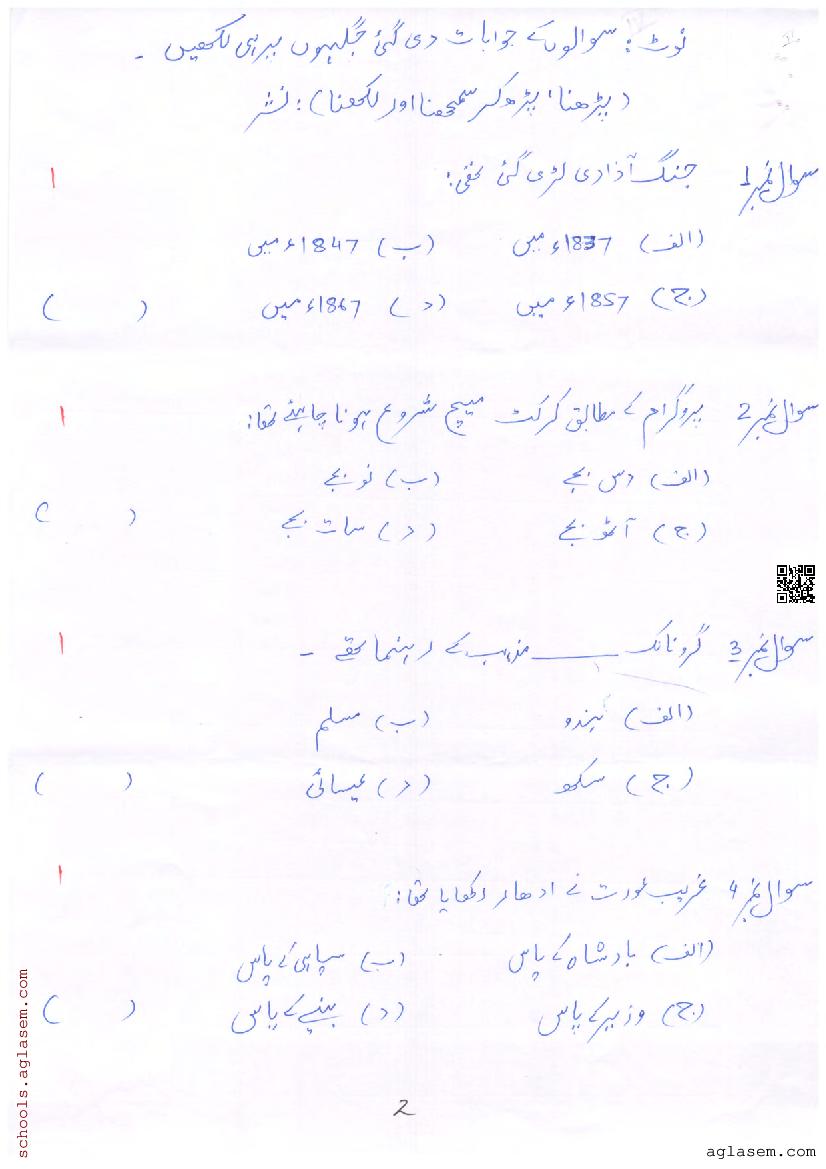 نوٹ: سوالوں کے جوابات دی گئی جگہوں پر ہی لکھیں۔
(پڑھنا، پڑھ کر سمجھنا اور لکھنا): نثر
سوال نمبر 1 جنگ آذادی لڑی گئی تھی: 1
(الف) 1837ء میں (ب) 1847ء میں
(ج) 1857ء میں (د) 1867ء میں ( )
سوال نمبر 2 پروگرام کے مطابق کرکٹ میچ شروع ہونا چاہئے تھا: 1
(الف) دس بجے (ب) نو بجے
(ج) آٹھ بجے (د) سات بجے ( )
سوال نمبر 3 گرونانک ______ مذہب کے رہنما تھے۔ 1
(الف) ہندو (ب) مسلم
(ج) سکھ (د) عیسائی ( )
سوال نمبر 4 غریب عورت نے ادھار رکھایا تھا: 1
(الف) بادشاہ کے پاس (ب) سپاہی کے پاس
(ج) وزیر کے پاس (د) بنیے کے پاس ( )
2
schools.aglasem.com
aglasem.com